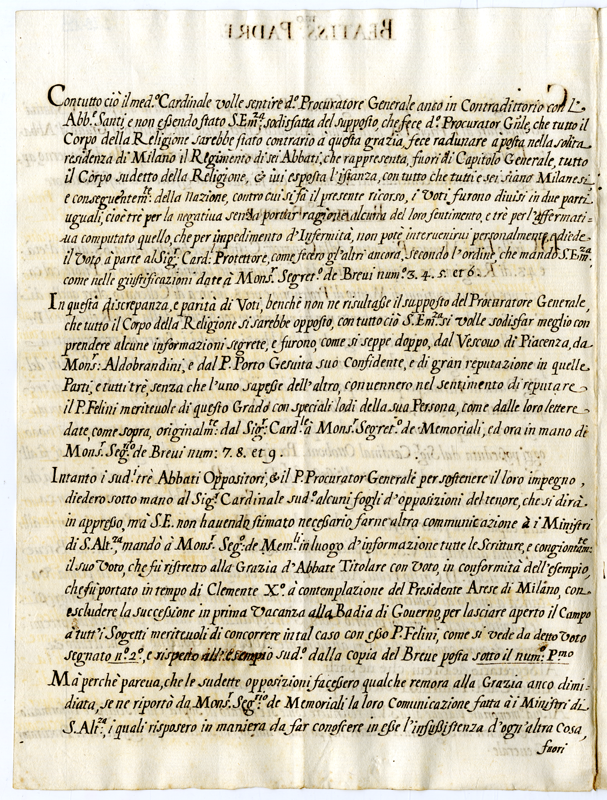 Contutto ciò il med.º Cardinale volle sentire d.º Procuratore Generale anco in Contradittorio con L'
Abb.e Santi, e non essendo stato S. Em.za sodisfatta del supposto, che fece d.º Procurator Gñle, che tutto il
Corpo della Religione sarebbe stato contrario à questa grazia, fece radunare à posta nella solita
residenza di Milano il Regimento di sei Abbati, che rappresenta, fuori di Capitolo Generale, tutto
il Corpo sudetto della Religione, & iui esposta l'istanza, con tutto che tutti e sei siano Milanesi
e conseguentem.te della Nazione, contro cui si fà il presente ricorso, i Voti furono diuisi in due parti
uguali, cioè trè per la negatiua senza portar ragione alcuna del loro sentimento, e trè per l'affermati-
ua computato quello, che per impedimento d'Infermità, non potè interuenirui personalmente, e diede
il Voto à parte al Sig.r Card: Protettore, come fecero gl'altri ancora, secondo l'ordine, che mandò S. Em.za
come nelle giustificazioni date à Mons.r Segret.º de Breui num.º 3. 4. 5. et 6.
In questa discrepanza, e parità di Voti, benchè non ne risultasse il supposto del Procuratore Generale,
che tutto il Corpo della Religione si sarebbe opposto, con tutto ciò S. Em.za si volle sodisfar meglio con
prendere alcune informazioni segrete, e furono, come si seppe doppo, dal Vescouo di Piacenza, da
Mons.r Aldobrandini, e dal P. Porto Gesuita suo Confidente, e di gran reputazione in quelle
Parti, e tutti trè, senza che l'uno sapesse dell'altro, conuennero nel sentimento di reputare
il P. Felini meriteuole di questo Grado con speciali lodi della sua Persona, come dalle loro lettere
date, come sopra, originalm.te dal Sig.r Card.le à Mons.r Segret.º de Memoriali, ed ora in mano di
Mons.r Seg.rio de Breui num: 7. 8. et 9.
Intanto i sud.i trè Abbati Oppositori, & il P. Procurator Generale per sostenere il loro impegno,
diedero sotto mano al Sig.r Cardinale sud.º alcuni fogli d'opposizioni del tenore, che si dirà
in appresso, mà S. E. non hauendo stimato necessario farne altra communicazione à i Ministri
di S. Alt.za mandò à Mons.r Seg.rio de Mem.li in luogo d'informazione tutte le Scritture, e congiontam.te
il suo Voto, che fù ristretto alla Grazia d'Abbate Titolare con Voto, in conformità dell'esempio,
che fù portato in tempo di Clemente X.º à contemplazione del Presidente Arese di Milano, con
escludere la successione in prima Vacanza alla Badia di Gouerno, per lasciare aperto il Campo
à tutt'i Sogetti meriteuoli di concorrere in tal caso con esso P. Felini, come si vede da detto Voto
segnato n.º 2.º, e rispetto all'esempio sud.º dalla Copia del Breue posta sotto il num.º P.mo
Mà perchè pareua, che le sudette opposizioni facessero qualche remora alla Grazia anco dimi-
diata, se ne riportò da Mons.r Seg.rio de Memoriali la loro Comunicazione fatta à i Ministri di
S. Alt.za, i quali risposero in maniera da far conoscere in esse l'insussistenza d'ogn'altra Cosa,
fuori